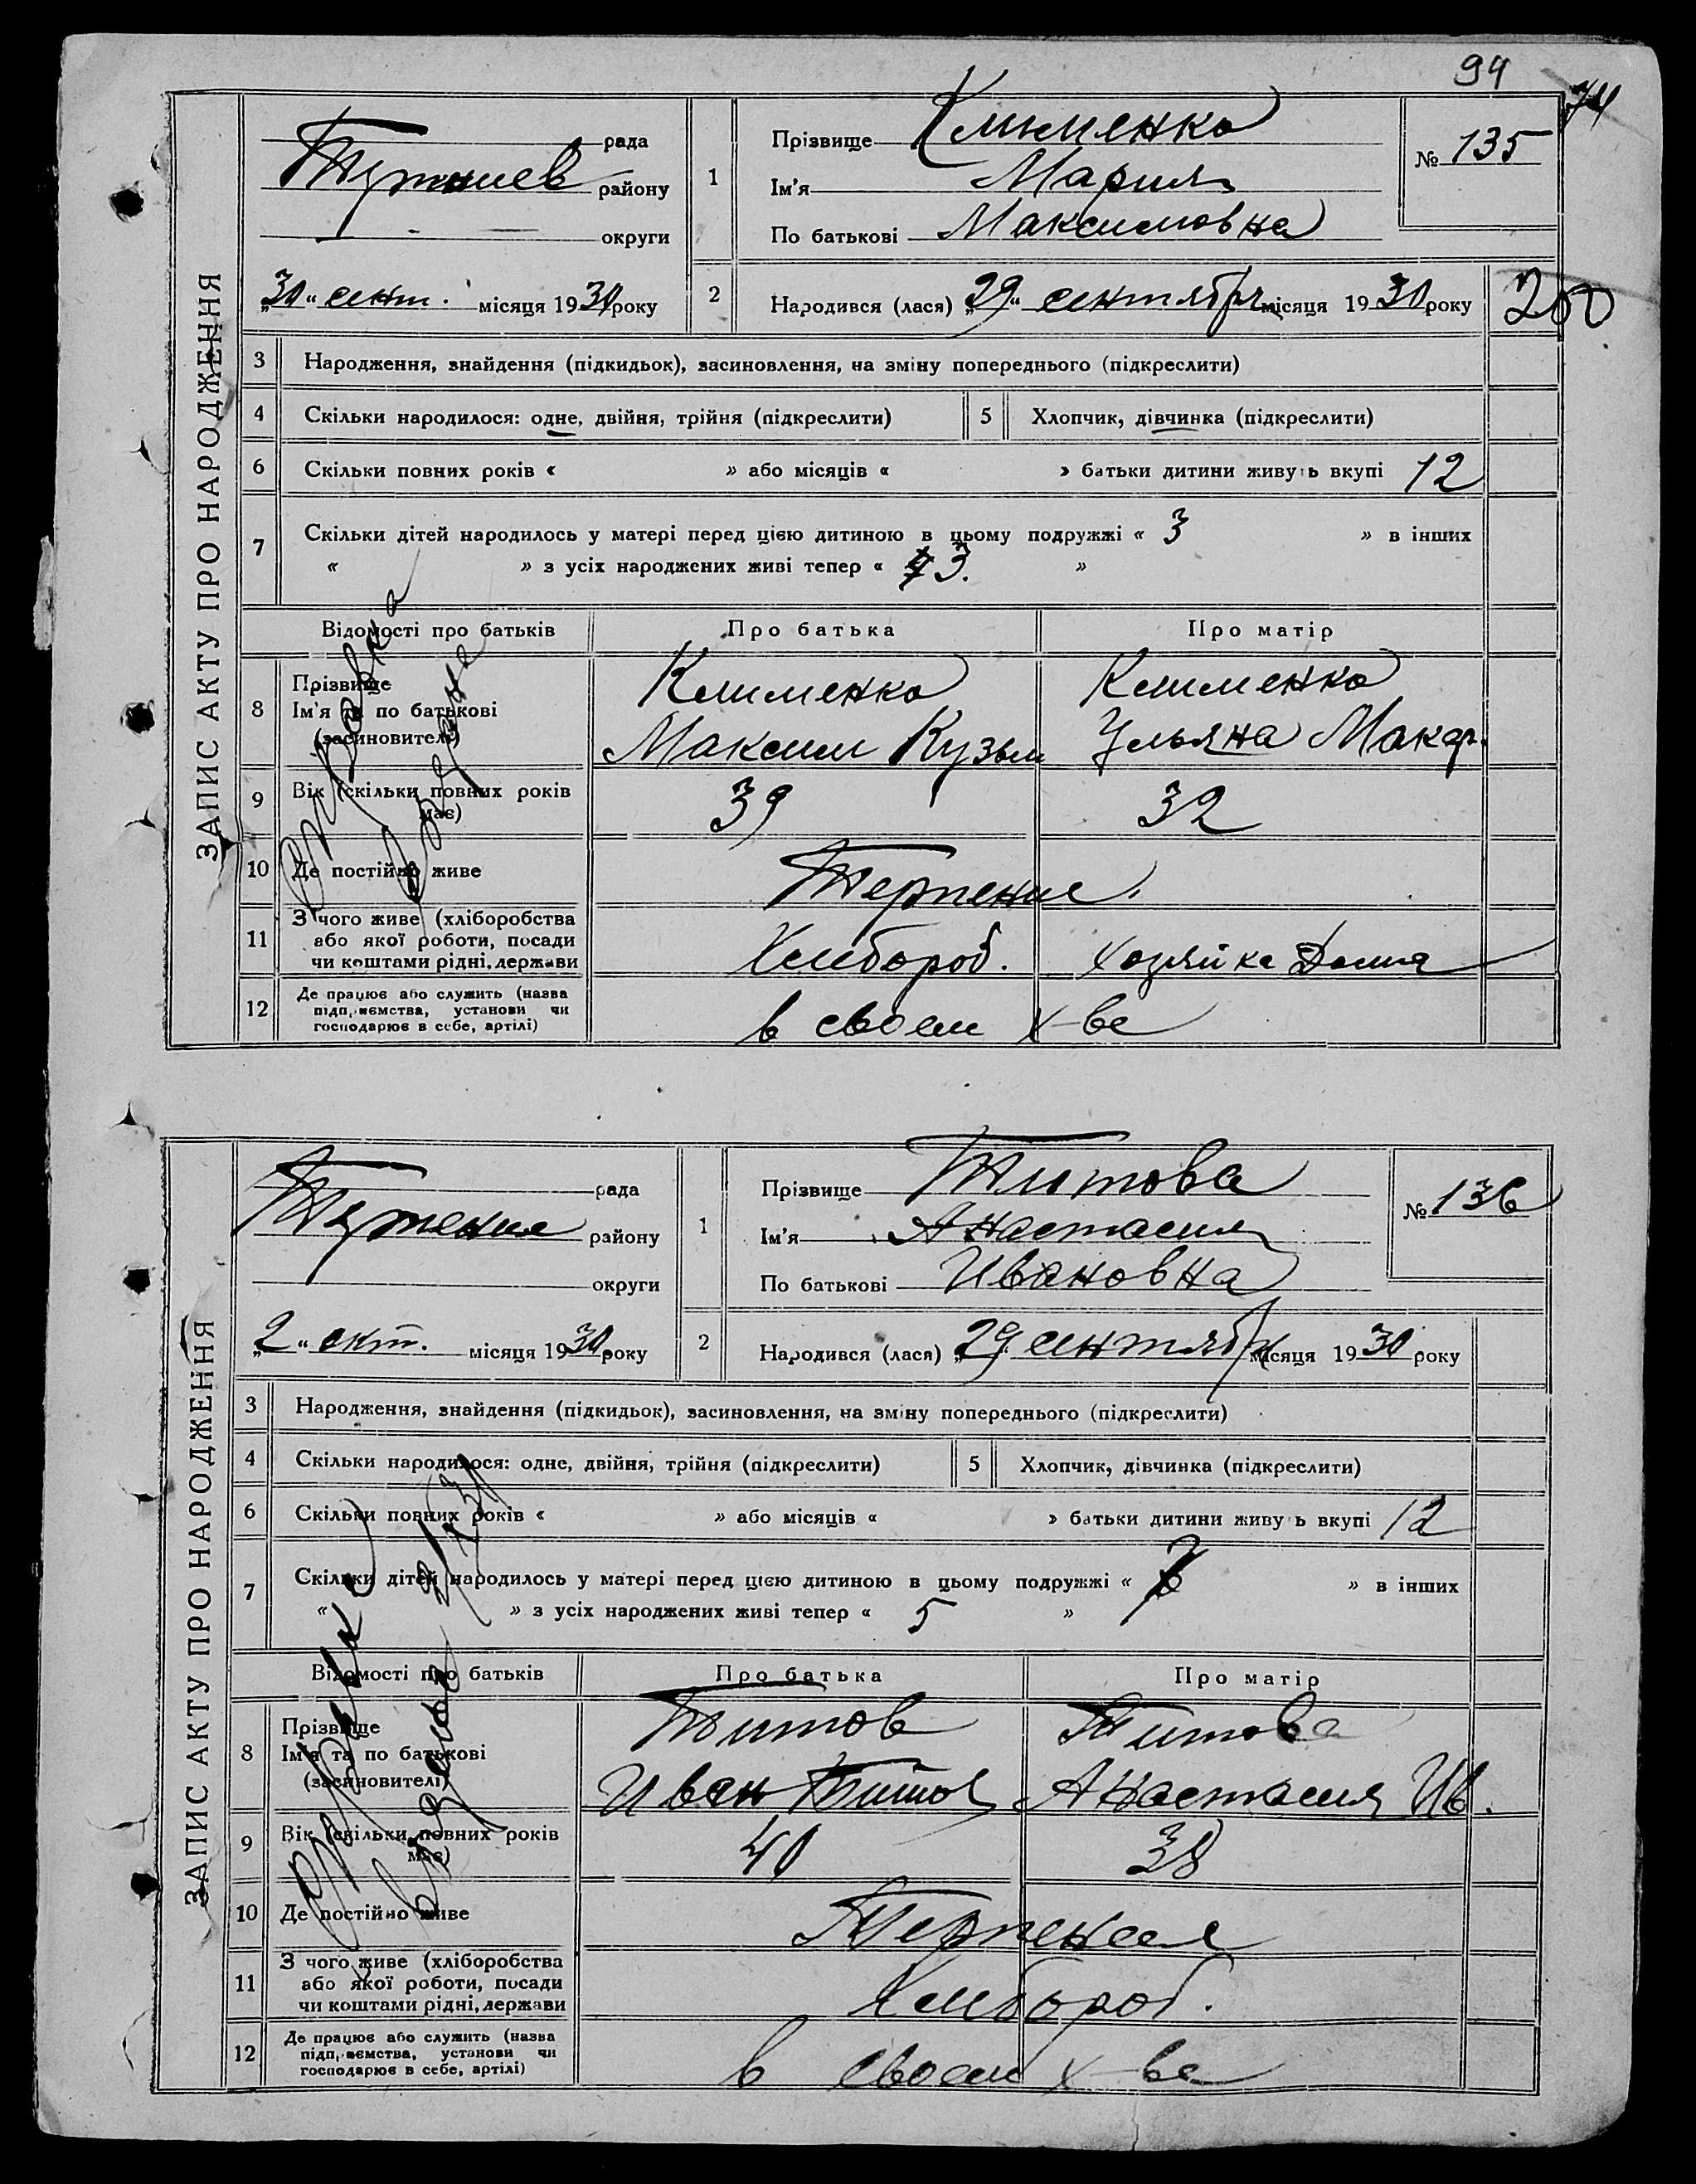 94
74
ЗАПИС АКТУ ПРО НАРОДЖЕННЯ
рада
району
округи
„30“ сент. місяця 1930 року
1
Прізвище Клименко
Ім'я Мария
По батькові Максимовна
№ 135
2
Народився (лася) „29“ сентября місяця 1930 року
200
3 Народження, знайдення (підкидьок), засиновлення, на зміну попереднього (підкреслити)
4 Скільки народилося: одне, двійня, трійня (підкреслити)
5 Хлопчик, дівчинка (підкреслити)
6 Скільки повних років « » або місяців « » батьки дитини живуть вкупі 12
7 Скільки дітей народилось у матері перед цією дитиною в цьому подружжі « 3 » в інших
« » з усіх народжених живі тепер « 3. »
Відомості про батьків Про батька Про матір
8 Прізвище
Ім'я та по батькові
(засиновителі)
Клименко
Максим Кузьм
Клименко
Ульяна Макар.
9 Вік (скільки повних років
має)
39
32
10 Де постійно живе
Терпение.
11 З чого живе (хліборобства
або якої роботи, посади
чи коштами рідні, держави
Хлебороб.
хозяйка Дома
12 Де працює або служить (назва
підприємства, установи чи
господарює в себе, артілі)
в своем х-ве
ЗАПИС АКТУ ПРО НАРОДЖЕННЯ
рада
району
округи
„2“ окт. місяця 1930 року
1
Прізвище Титова
Ім'я Анастасия
По батькові Ивановна
№ 136
2
Народився (лася) „29 сентября місяця 1930 року
3 Народження, знайдення (підкидьок), засиновлення, на зміну попереднього (підкреслити)
4 Скільки народилося: одне, двійня, трійня (підкреслити)
5 Хлопчик, дівчинка (підкреслити)
6 Скільки повних років « » або місяців « » батьки дитини живуть вкупі 12
7 Скільки дітей народилось у матері перед цією дитиною в цьому подружжі « » в інших
« » з усіх народжених живі тепер « 5 »
Відомості про батьків Про батька Про матір
8 Прізвище
Ім'я та по батькові
(засиновителі)
Титов
Иван
Титова
Анастасия Ив.
9 Вік (скільки повних років
має)
40
38
10 Де постійно живе
Терпение
11 З чого живе (хліборобства
або якої роботи, посади
чи коштами рідні, держави
Хлебороб.
12 Де працює або служить (назва
підприємства, установи чи
господарює в себе, артілі)
в своем х-ве